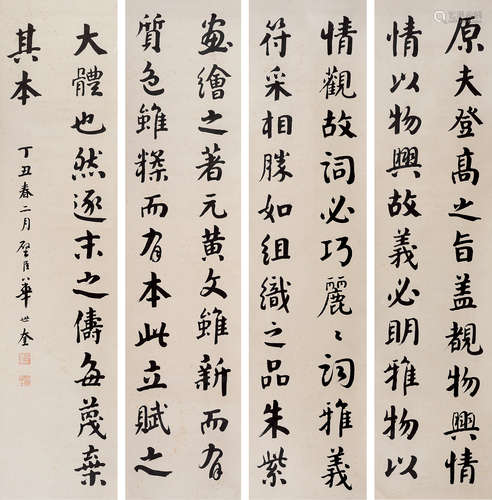 原夫登高之旨盖覩物興情
情以物興故義必明雅物以
情觀故詞必巧麗〻詞雅義
符采相勝如組織之品朱紫
畫繪之著元黃文雖新而有
質色雖糅而有本此立賦之
大體也然逐末之儔每蔑棄
其本
丁丑春二月璧臣華世奎